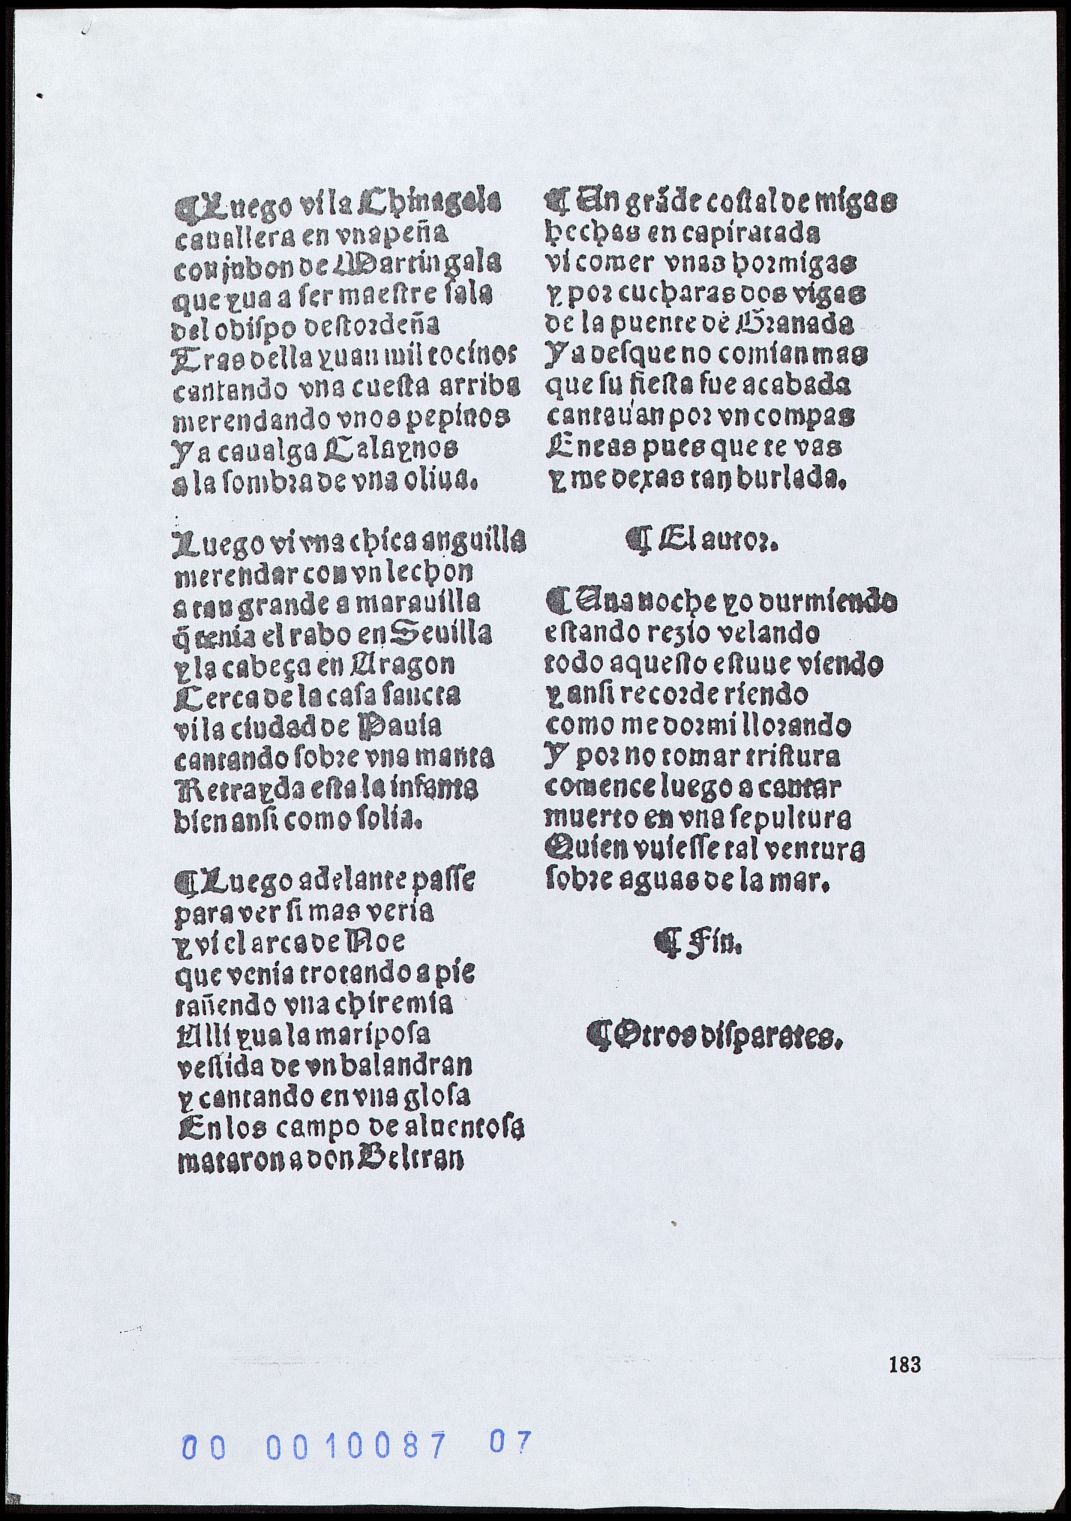 ¶ Luego vi la Chinagala
cauallera en vna peña
con jubon de Martingala
que yua a ser maestre sala
del obispo destordeña
Tras della yuan mil rocinos
cantando vna cuesta arriba
merendando vnos pepinos
Ya caualga Calaynos
a la sombra de vna oliua.
Luego vi vna chica anguilla
merendar con vn lechon
a tan grande a marauilla
q̃ tenia el rabo en Seuilla
y la cabeça en Aragon
Cerca de la casa sancta
vi la ciudad de Pauia
cantando sobre vna manta
Retrayda esta la infanta
bien ansi como solia.
¶ Luego adelante passe
para ver si mas veria
y vi el arca de Noe
que venia trotando a pie
tañendo vna chiremia
Alli yua la mariposa
vestida de vn balandran
y cantando en vna glosa
En los campo de aluentosa
mataron a don Beltran
¶ Un grãde costal de migas
hechas en capiratada
vi comer vnas hormigas
y por cucharas dos vigas
de la puente de Granada
Ya desque no comian mas
que su fiesta fue acabada
cantauan por vn compas
Eneas pues que te vas
y me dexas tan burlada.
¶ El autor.
¶ Una noche yo durmiendo
estando rezio velando
todo aquesto estuue viendo
y ansi recorde riendo
como me dormi llorando
Y por no tomar tristura
comence luego a cantar
muerto en vna sepultura
Quien vuiesse tal ventura
sobre aguas de la mar.
¶ Fin.
¶ Otros disparates.
183
00 0010087 07